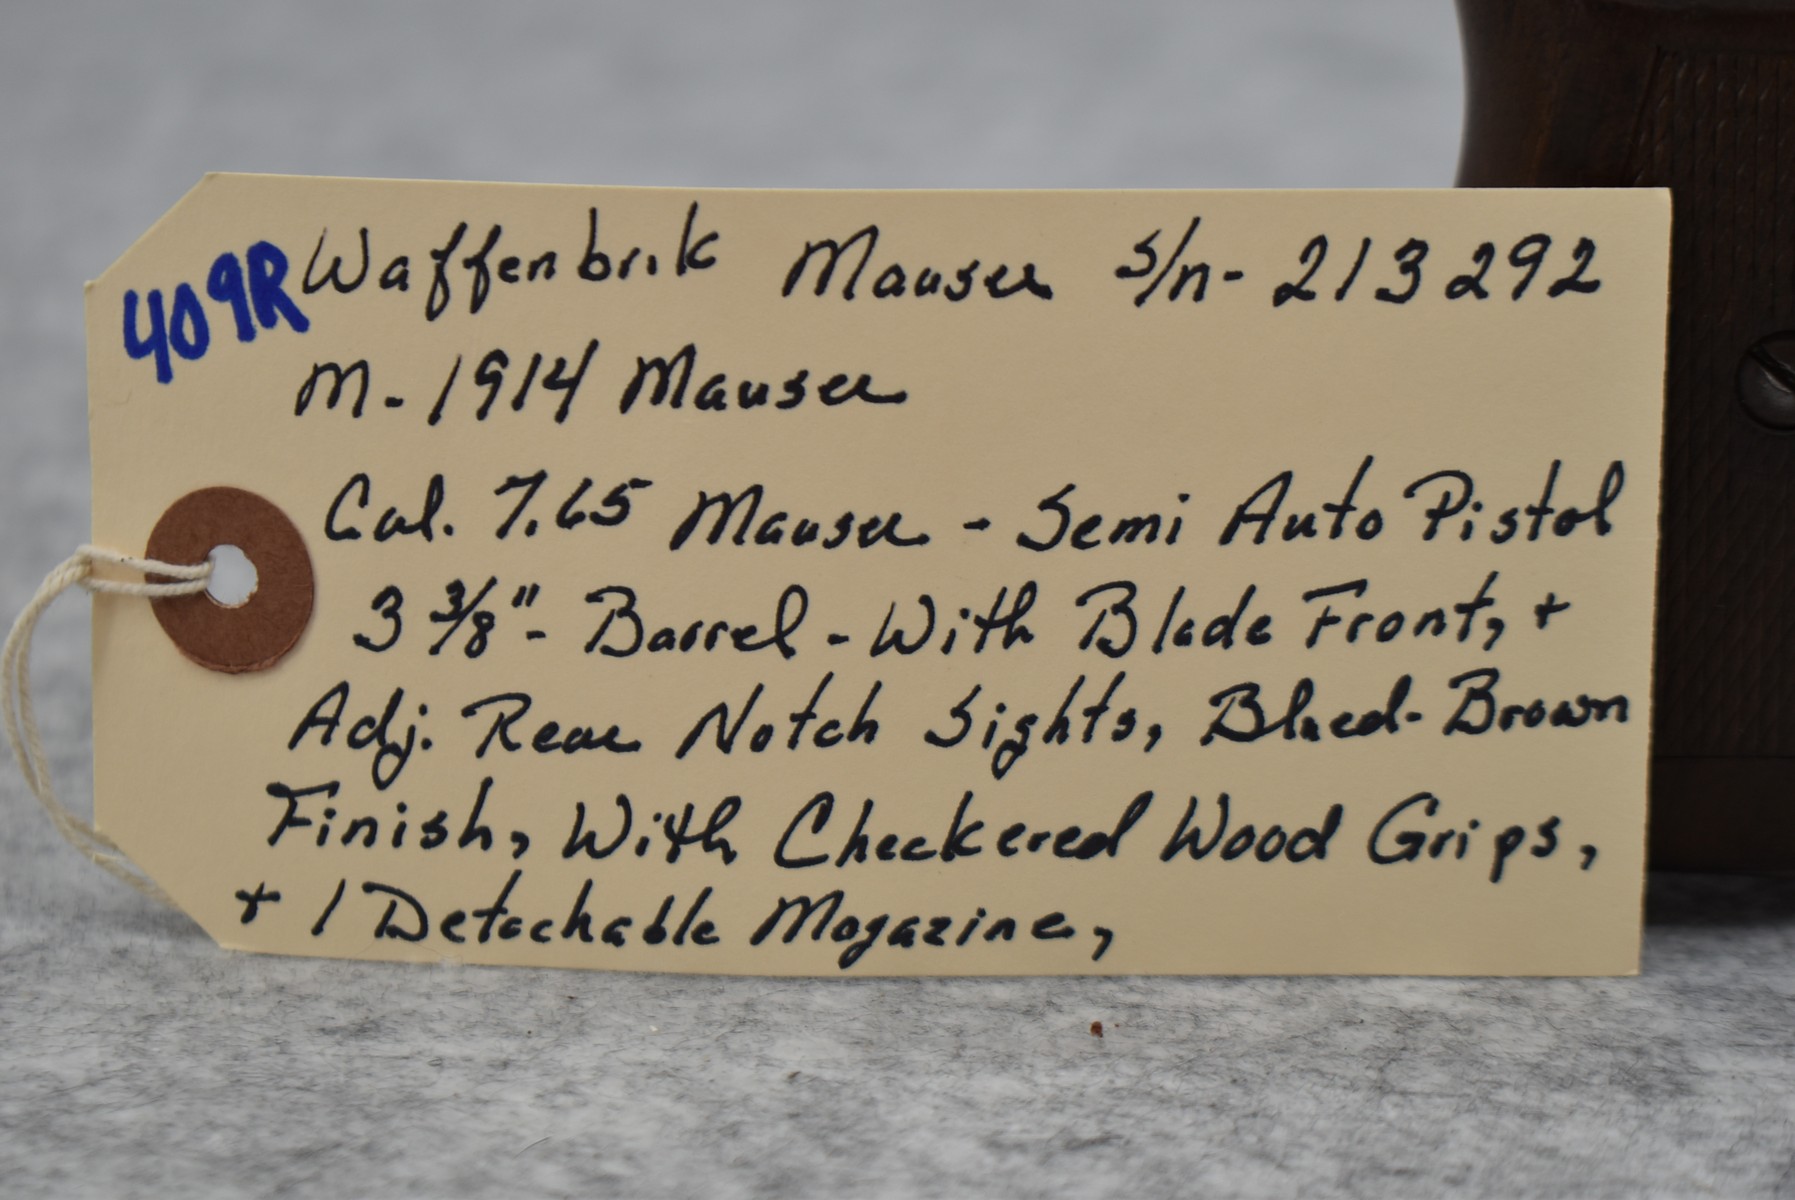 409R Waffenbrik Mauser s/n- 213292
M-1914 Mauser
Cal. 7.65 Mauser - Semi Auto Pistol
3 3/8"- Barrel - With Blade Front, +
Adj. Rear Notch Sights, Blued-Brown
Finish, With Checkered Wood Grips,
+ 1 Detachable Magazine,